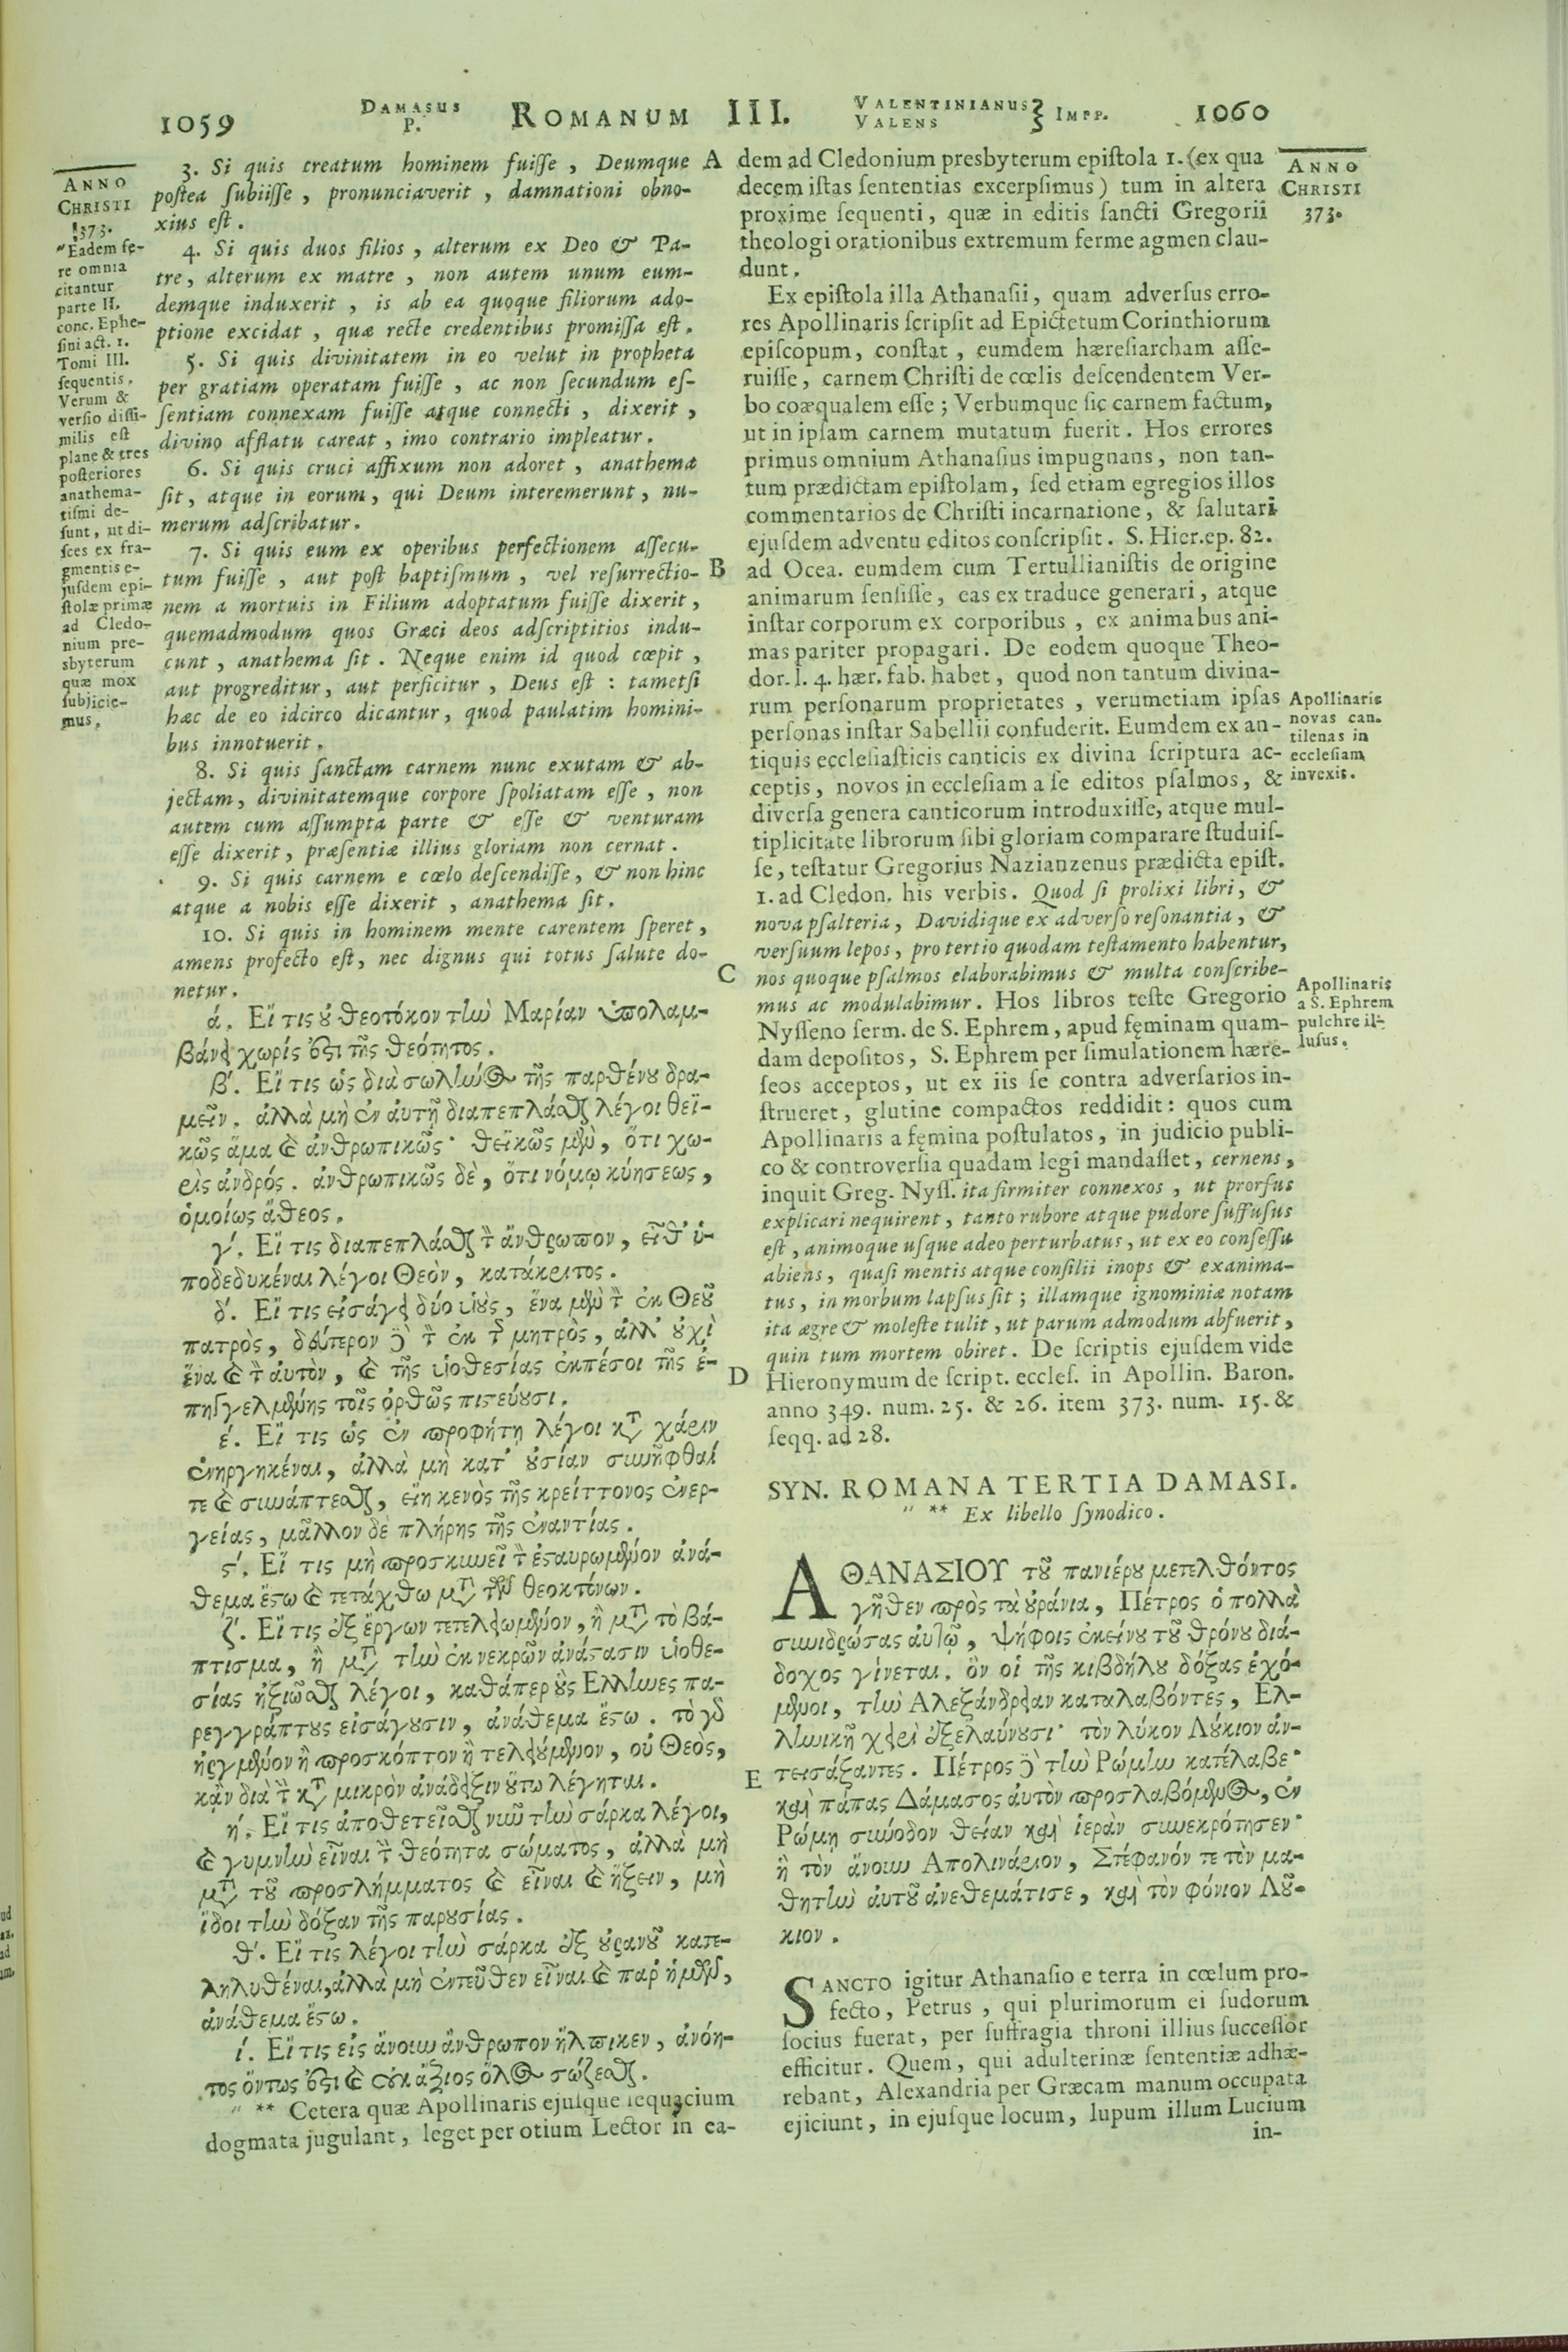 1059
DAMASUS P.
ROMANUM III.
VALENTINIANUS VALENS } IMPP.
1060
ANNO
CHRISTI
373.
"Eadem fe-
re omnia
citantur
parte II.
conc. Ephe-
sini act. 1.
Tomi III.
sequentis.
Verum &
versio dissi-
milis est
plane & tres
posteriores
anathema-
tismi de-
sunt, ut di-
sces ex fra-
gmentis e-
jusdem epi-
stolæ primæ
ad Cledo-
nium pre-
sbyterum
quæ mox
subjicie-
mus.
3. Si quis creatum hominem fuisse, Deumque
postea subiisse, pronunciaverit, damnationi obno-
xius est.
4. Si quis duos filios, alterum ex Deo & Pa-
tre, alterum ex matre, non autem unum eum-
demque induxerit, is ab ea quoque filiorum ado-
ptione excidat, quæ recte credentibus promissa est.
5. Si quis divinitatem in eo velut in propheta
per gratiam operatam fuisse, ac non secundum es-
sentiam connexam fuisse atque connecti, dixerit,
divino afflatu careat, imo contrario impleatur.
6. Si quis cruci affixum non adoret, anathema
sit, atque in eorum, qui Deum interemerunt, nu-
merum adscribatur.
7. Si quis eum ex operibus perfectionem assecu-
tum fuisse, aut post baptismum, vel resurrectio-
nem a mortuis in Filium adoptatum fuisse dixerit,
quemadmodum quos Græci deos adscriptitios indu-
cunt, anathema sit. Neque enim id quod cœpit,
aut progreditur, aut perficitur, Deus est: tametsi
hæc de eo idcirco dicantur, quod paulatim homini-
bus innotuerit.
8. Si quis sanctam carnem nunc exutam & ab-
jectam, divinitatemque corpore spoliatam esse, non
autem cum assumpta parte & esse & venturam
esse dixerit, præsentiæ illius gloriam non cernat.
9. Si quis carnem e cœlo descendisse, & non hinc
atque a nobis esse dixerit, anathema sit.
10. Si quis in hominem mente carentem speret,
amens profecto est, nec dignus qui totus salute do-
netur.
ά. Εἴ τις οὐ θεοτόκον τὴν Μαρίαν ὑπολαμ-
βάνει χωρίς ἐστι τῆς θεότητος.
β'. Εἴ τις ὡς διὰ σωλῆνος τῆς παρθένου δρα-
μεῖν. ἀλλὰ μὴ ἐν αὐτῇ διαπεπλάσθαι λέγοι θεϊ-
κῶς ἅμα καὶ ἀνθρωπικῶς· θεϊκῶς μὲν, ὅτι χω-
ρὶς ἀνδρός. ἀνθρωπικῶς δὲ, ὅτι νόμῳ κύησεως,
ὁμοίως ἄθεος.
γ'. Εἴ τις διαπεπλάσθαι τὸν ἄνθρωπον, εἶθ' ὑ-
ποδεδυκέναι λέγοι Θεὸν, κατάκριτος.
δ'. Εἴ τις εἰσάγει δύο υἱοὺς, ἕνα μὲν τὸν ἐκ Θεοῦ
πατρὸς, δεύτερον δὲ τὸν ἐκ τῆς μητρὸς, ἀλλ' οὐχὶ
ἕνα καὶ τὸν αὐτὸν, καὶ τῆς υἱοθεσίας ἐκπέσοι τῆς ἐ-
πηγγελμένης τοῖς ὀρθῶς πιστεύουσι.
έ. Εἴ τις ὡς ἐν προφήτῃ λέγοι κατὰ χάριν
ἐνηργηκέναι, ἀλλὰ μὴ κατ' οὐσίαν συνῆφθαί
τε καὶ συνάπτεσθαι, εἴη κενὸς τῆς κρείττονος ἐνερ-
γείας, μᾶλλον δὲ πλήρης τῆς ἐναντίας.
ς'. Εἴ τις μὴ προσκυνεῖ τὸν ἐσταυρωμένον ἀνά-
θεμα ἔστω καὶ τετάχθω μετὰ τῶν θεοκτόνων.
ζ'. Εἴ τις ἐξ ἔργων τετελειωμένον, ἢ μετὰ τὸ βά-
πτισμα, ἢ μετὰ τὴν ἐκ νεκρῶν ἀνάστασιν υἱοθε-
σίας ἠξιῶσθαι λέγοι, καθάπερ οὓς Ελληνες πα-
ρεγγράπτους εἰσάγουσιν, ἀνάθεμα ἔστω. τὸ γὰρ
ἠργμένον ἢ προσκόπτον ἢ τελειούμενον, οὐ Θεὸς,
κἂν διὰ τὴν κατὰ μικρὸν ἀνάδειξιν οὕτω λέγηται.
ή. Εἴ τις ἀποθετεῖσθαι νῦν τὴν σάρκα λέγοι,
καὶ γυμνὴν εἶναι τὴν θεότητα σώματος, ἀλλὰ μὴ
μετὰ τοῦ προσλήμματος καὶ εἶναι καὶ ἥξειν, μὴ
ἴδοι τὴν δόξαν τῆς παρουσίας.
θ'. Εἴ τις λέγοι τὴν σάρκα ἐξ οὐρανοῦ κατε-
ληλυθέναι, ἀλλὰ μὴ ἐντεῦθεν εἶναι καὶ παρ' ἡμῶν,
ἀνάθεμα ἔστω.
ί. Εἴ τις εἰς ἄνουν ἄνθρωπον ἤλπικεν, ἀνόη-
τος ὄντως ἐστι καὶ οὐκ ἄξιος ὅλος σώζεσθαι.
" ** Cetera quæ Apollinaris ejusque sequacium
dogmata jugulant, leget per otium Lector in ea-
A
B
C
D
E
dem ad Cledonium presbyterum epistola 1. (ex qua
decem istas sententias excerpsimus) tum in altera
proxime sequenti, quæ in editis sancti Gregorii
theologi orationibus extremum ferme agmen clau-
dunt.
Ex epistola illa Athanasii, quam adversus erro-
res Apollinaris scripsit ad Epictetum Corinthiorum
episcopum, constat, eumdem hæresiarcham asse-
ruisse, carnem Christi de cœlis descendentem Ver-
bo coæqualem esse; Verbumque sic carnem factum,
ut in ipsam carnem mutatum fuerit. Hos errores
primus omnium Athanasius impugnans, non tan-
tum prædictam epistolam, sed etiam egregios illos
commentarios de Christi incarnatione, & salutari
ejusdem adventu editos conscripsit. S. Hier. ep. 82.
ad Ocea. eumdem cum Tertullianistis de origine
animarum sensisse, eas ex traduce generari, atque
instar corporum ex corporibus, ex animabus ani-
mas pariter propagari. De eodem quoque Theo-
dor. l. 4. hær. fab. habet, quod non tantum divina-
rum personarum proprietates, verumetiam ipsas
personas instar Sabellii confuderit. Eumdem ex an-
tiquis ecclesiasticis canticis ex divina scriptura ac-
ceptis, novos in ecclesiam a se editos psalmos, &
diversa genera canticorum introduxisse, atque mul-
tiplicitate librorum sibi gloriam comparare studuis-
se, testatur Gregorius Nazianzenus prædicta epist.
1. ad Cledon. his verbis. Quod si prolixi libri, &
nova psalteria, Davidique ex adverso resonantia, &
versuum lepos, pro tertio quodam testamento habentur,
nos quoque psalmos elaborabimus & multa conscribe-
mus ac modulabimur. Hos libros teste Gregorio
Nysseno serm. de S. Ephrem, apud fęminam quam-
dam depositos, S. Ephrem per simulationem hære-
seos acceptos, ut ex iis se contra adversarios in-
strueret, glutine compactos reddidit: quos cum
Apollinaris a fęmina postulatos, in judicio publi-
co & controversia quadam legi mandasset, cernens,
inquit Greg. Nyss. ita firmiter connexos, ut prorsus
explicari nequirent, tanto rubore atque pudore suffusus
est, animoque usque adeo perturbatus, ut ex eo consessu
abiens, quasi mentis atque consilii inops & exanima-
tus, in morbum lapsus sit; illamque ignominiæ notam
ita ægre & moleste tulit, ut parum admodum abfuerit,
quin tum mortem obiret. De scriptis ejusdem vide
Hieronymum de script. eccles. in Apollin. Baron.
anno 349. num. 25. & 26. item 373. num. 15. &
seqq. ad 28.
SYN. ROMANA TERTIA DAMASI.
" ** Ex libello synodico.
ΑΘΑΝΑΣΙΟΥ τοῦ πανιέρου μετελθόντος
γῆθεν πρὸς τὰ οὐράνια, Πέτρος ὁ πολλὰ
συνιδρώσας αὐτῷ, ψήφοις ἐκείνου τοῦ θρόνου διά-
δοχος γίνεται. ὃν οἱ τῆς κιβδήλου δόξας ἐχό-
μενοι, τὴν Αλεξάνδρειαν καταλαβόντες, Ελ-
ληνικῇ χειρὶ ἐξελαύνουσι· τὸν λύκον Λούκιον ἀν-
τεισάξαντες. Πέτρος δὲ τὴν Ρώμην κατέλαβε·
καὶ πάπας Δάμασος αὐτὸν προσλαβόμενος, ἐν
Ρώμῃ σύνοδον θείαν καὶ ἱερὰν συνεκρότησεν·
ἢ τὸν ἄνουν Απολινάριον, Στέφανόν τε τὸν μα-
θητὴν αὐτοῦ ἀνεθεμάτισε, καὶ τὸν φόνιον Λού-
κιον.
SANCTO igitur Athanasio e terra in cœlum pro-
fecto, Petrus, qui plurimorum ei sudorum
socius fuerat, per suffragia throni illius successor
efficitur. Quem, qui adulterinæ sententiæ adhæ-
rebant, Alexandria per Græcam manum occupata
ejiciunt, in ejusque locum, lupum illum Lucium
in-
ANNO
CHRISTI
373.
Apollinaris
novas can-
tilenas in
ecclesiam
invexit.
Apollinaris
a S. Ephrem
pulchre il-
lusus.